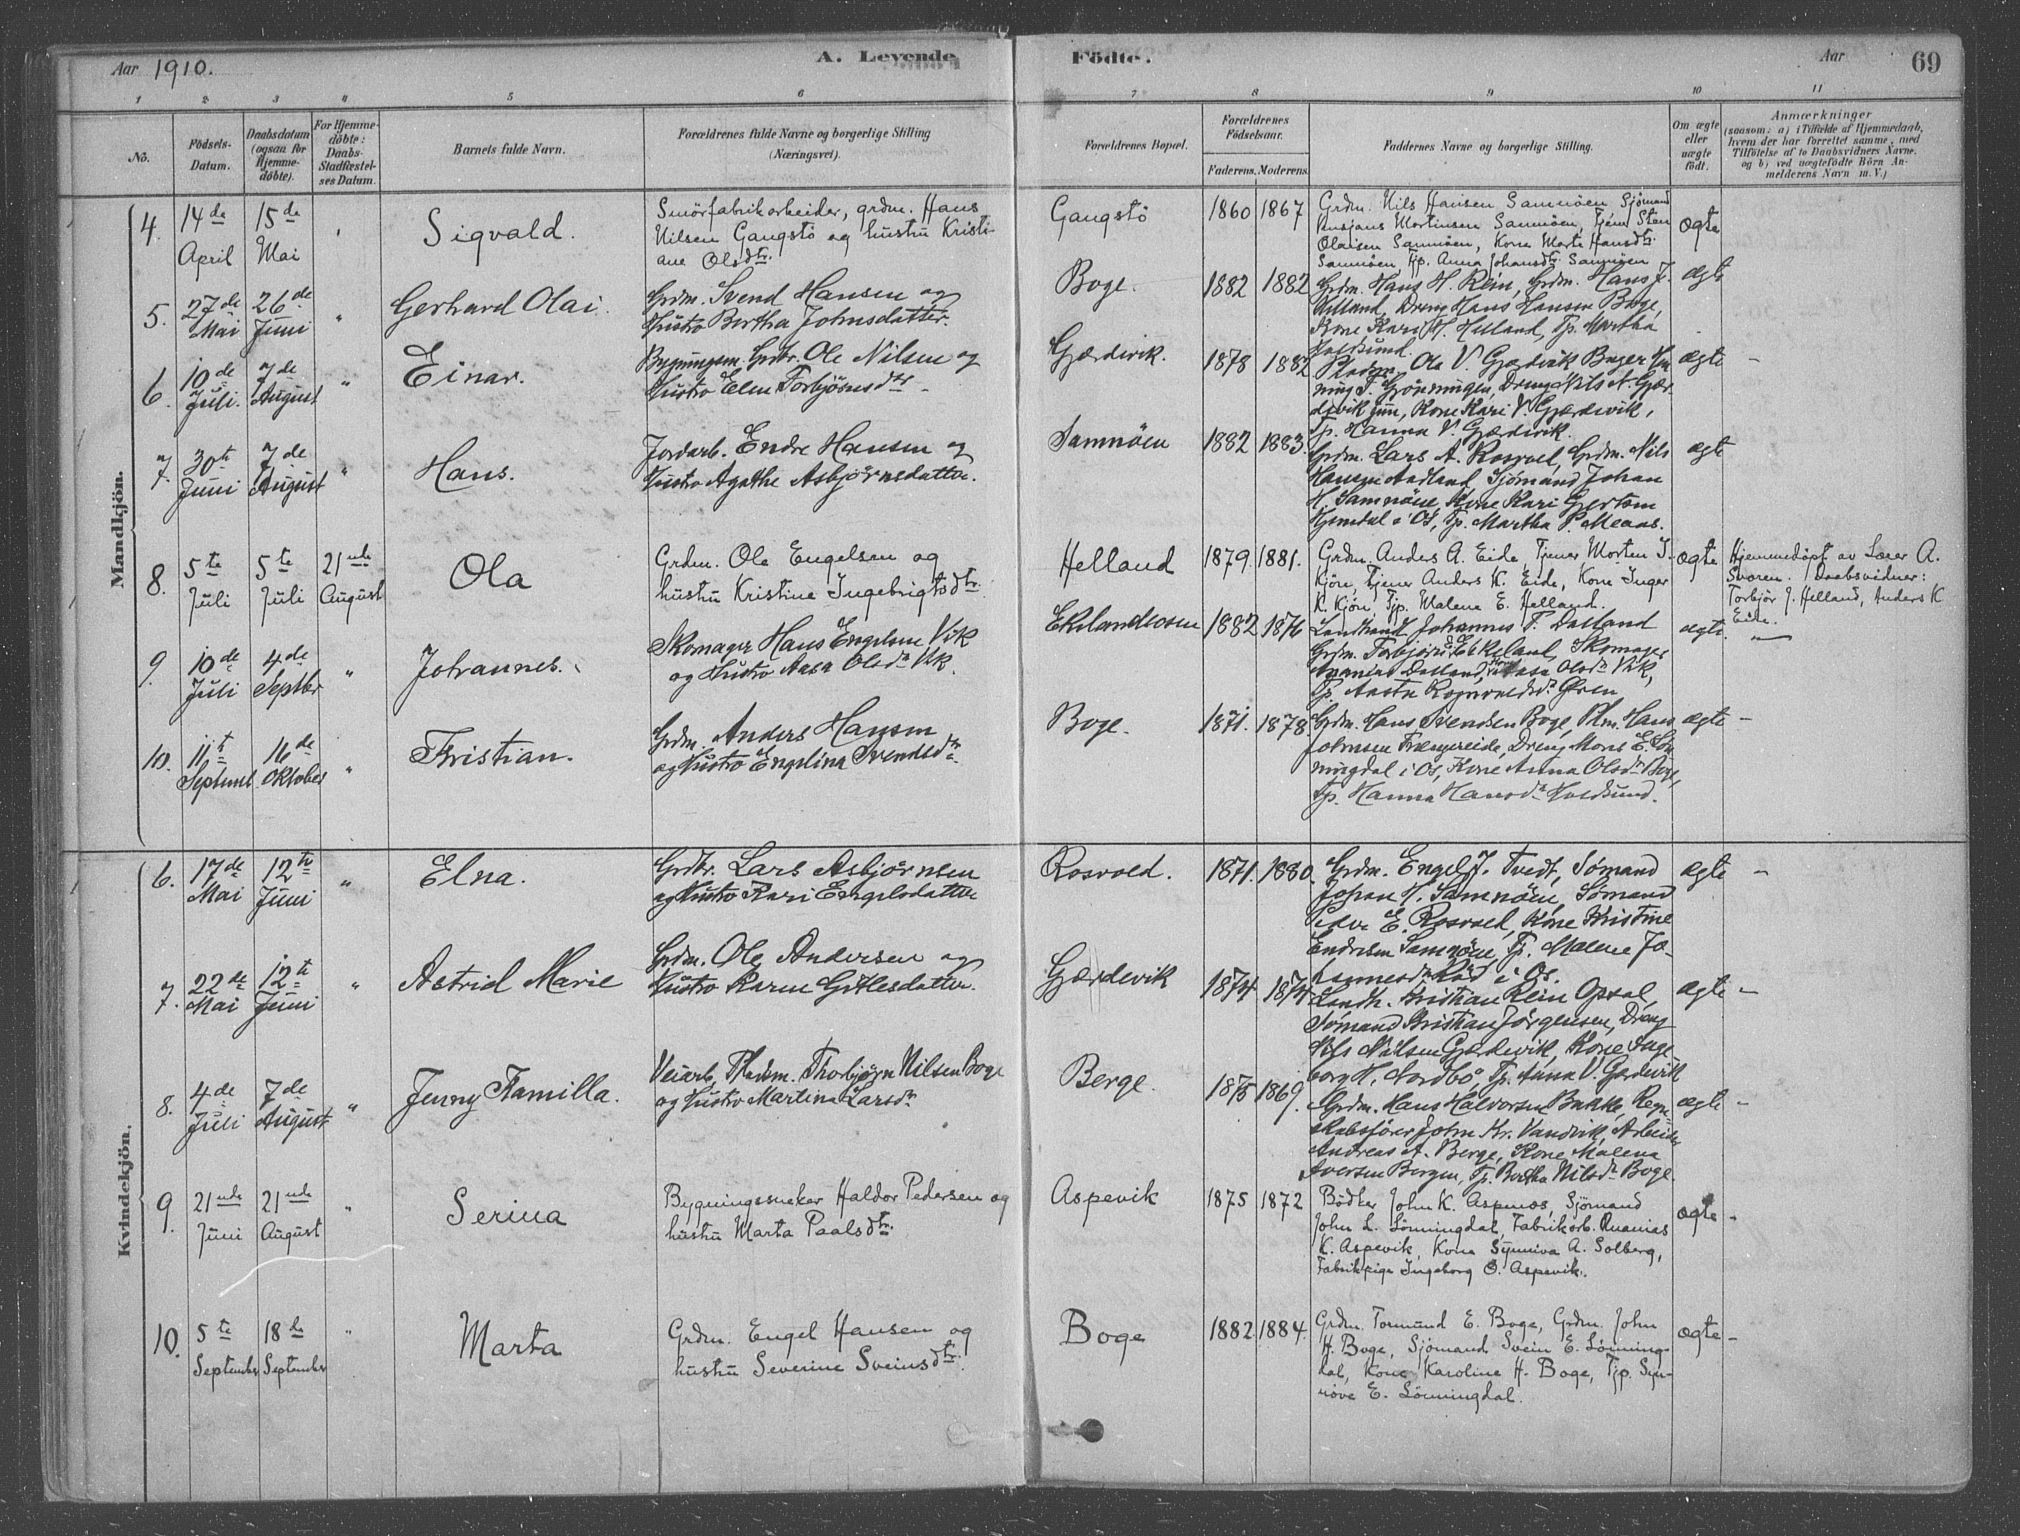 Aar 1910.
A. Levende
Födte.
Aar
69
1 2 3 4 5 6 7 8 9 10 11
No.
Födsels-
Datum.
Daabsdatum
(ogsaa for
Hjemme-
döbte).
For Hjemme-
döbte:
Daabs-
Stadfæstel-
ses Datum.
Barnets fulde Navn.
Forældrenes fulde Navne og borgerlige Stilling
(Næringsvei).
Forældrenes Bopæl.
Forældrenes
Födselsaar.
Faderens. Moderens.
Faddernes Navne og borgerlige Stilling.
Om ægte
eller
uægte
födt.
Anmærkninger
(saasom: a) i Tilfælde af Hjemmedaab,
hvem der har forrettet samme, med
Tilföielse af to Daabsvidners Navne,
og b) ved uægtefödte Börn An-
melderens Navn m. V.)
Mandkjön.
4. 14de April
15de Mai
Sigvald.
Smörfabrikarbeider, grdm. Hans
Nilsen Gangstö og hustru Kristi-
ane Olsdtr.
Gangstö
1860 1867
Grdm. Nils Hansen Samnöen Sjömand
Martinsen Samnöen, Tjener Sten
Olaisen Samnöen, Kone Marta Hansdtr.
Samnöen Tjp. Anna Johansdtr. Samnöen
ægte
5. 27de Mai
26de Juni "
Gerhard Olai.
Grdm. Svend Hansen og
Hustro Bertha Johnsdatter.
Boge.
1882 1882
Grdm. Hans H. Rein, Grdm. Hans J.
Helland, Dreng Hans Hansen Boge,
Kone Kari H. Helland, Tp. Martha
Holdsund.
ægte
6. 10de Juli.
7de August "
Einar.
Bygningsm. Grdbr. Ole Nilsen og
Hustro Elen Torbjörnsdtr
Gjærdevik.
1878 1882
Ole V. Gjærdevik Bager Hen-
ning T. Grönningen, Dreng Nils N. Gjær-
devik jun, Kone Kari V. Gjærdevik,
Tp. Hanna V. Gjærdevik.
ægte -
7. 30te Juni
7de August "
Hans.
Jordarb. Endre Hansen og
Hustro Agathe Asbjörnsdatter.
Samnöen
1882 1883.
Grdm. Lars A. Rosvold, Grdm. Nils
Hansen Aadland Sjömand Johan
H. Samnöen, Kone Kari Gjertsen
Hjemdal i Os, Tp. Martha P. Meaas.
ægte
8. 5te Juli
5te Juli
21nde August
Ola
Grdm. Ole Engelsen og
hustru Kristine Ingebrigtsdtr.
Helland
1879. 1881.
Grdm. Andes A. Eide, Tjener Morten I.
Kjön, Tjener Anders K. Eide, Kone Inger
K. Kjön, Tjp. Malene E. Helland.
ægte
Hjemmedöpt av Lærer A.
Svoren. Daabsvidner:
Torbjör J. Helland, Anders K
Eide.
9. 10de Juli
4de Septbr "
Johannes.
Skomager Hans Engelsen Vik
og Hustro Aasa Olsdtr Vik.
Ekelandsosen
1882 1876
Landhand. Johannes T. Dalland
Grdm. Torbjörn Ekeland, Skomager
Ananias Dalland, Kone Aasa Olsdtr Vik,
Tp. Aasta Rognvaldsdtr Ören
ægte
10. 11te Septemb
16de Oktober "
Kristian.
Grdm. Anders Hansen
og Hustro Engelina Svendsdtr.
Boge.
1871. 1878
Grdm. Hans Svendsen Boge, Plm. Hans
Johnsen Trængereide, Dreng Mons E. Sön-
ningdal i Os, Kone Anna Olsdtr Boge,
Tp. Hanna Hansdtr Holdsund.
ægte -
Kvindekjön.
6. 17de Mai
12te Juni "
Elna.
Grdbr. Lars Asbjörnsen
og Hustro Kari Engelsdatter
Rosvold.
1871. 1880.
Grdm. Engel J. Tvedt, Sømand
Johan H. Samnöen, Sømand
Peder E. Rosvold, Kone Kristine
Endresen Samnöen, Tp. Malene Jo-
hannesdtr Röd i Os.
ægte -
7. 22de Mai
12te Juni "
Astrid Marie
Grdm. Ole Andersen og
Hustro Karen Gitlesdatter.
Gjærdevik
1874 1874
Landh. Kristian Rein Opsal,
Sømand Kristian Jörgensen, Dreng
Nils Nilsen Gjærdevik, Kone Inge
borg H. Nordbö, Tp. Anna V. Gjærdevik
ægte -
8. 4de Juli
7de August "
Jenny Kamilla.
Veiarb. Pladsm. Thorbjørn Nilsen Boge
og Hustro Martina Larsdtr
Berge.
1875 1869.
Grdm. Hans Halvorsen Bakke, Regn-
skabsfører John Kr. Vandvik, Arbeider
Andreas A. Berge, Kone Malena
Iversen Bergen, Tp. Bertha Nilsdtr Boge
ægte -
9. 21nde Juni
21nde August "
Serina
Bygningssneker Haldor Pedersen og
hustru Marta Paalsdtr.
Aspevik
1875 1872
Bödker John K. Aspenæs, Sjömand
John L. Lönningdal, Fabrikarb. Ananias
K. Aspevik, Kone Synniva A. Solberg,
Fabrikpige Ingeborg O. Aspevik.
ægte -
10. 5te September
18de September "
Marta
Grdm. Engel Hansen og
hustru Severine Sveinsdtr.
Boge
1882 1884.
Grdm. Tormund E. Boge, Grdm. John
H. Boge, Sjömand Svein E. Lönning-
dal, Kone Karoline H. Boge, Tjp. Syn-
növe E. Lönningdal.
ægte -